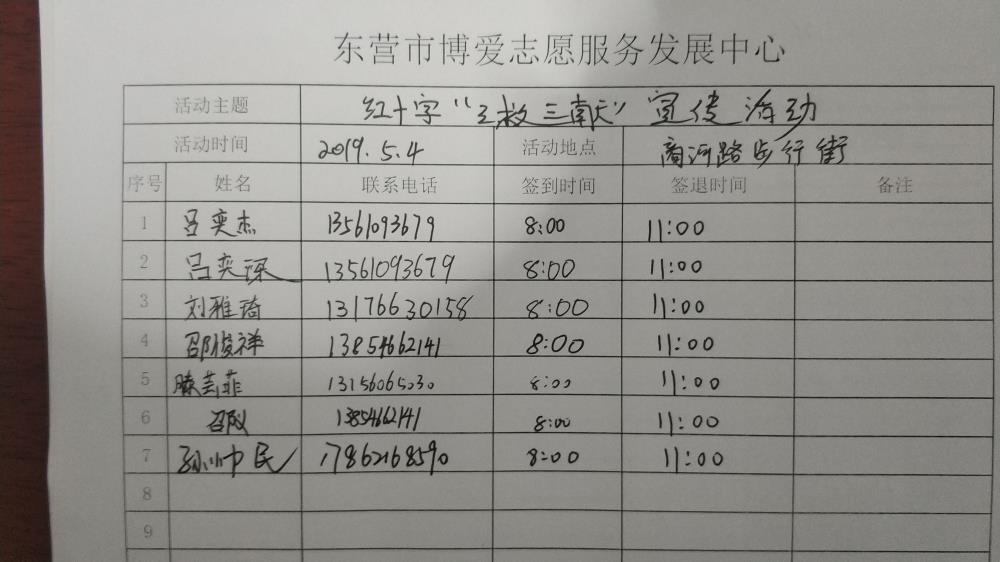 东营市博爱志愿服务发展中心
活动主题 红十字“三救三献”宣传活动
活动时间 2019.5.4 活动地点 商河路步行街
序号 姓名 联系电话 签到时间 签退时间 备注
1 吕奕杰 13561093679 8:00 11:00
2 吕奕琛 13561093679 8:00 11:00
3 刘雅琦 13176630158 8:00 11:00
4 邵俊祥 13854662141 8:00 11:00
5 滕芸菲 13156065030 8:00 11:00
6 13854662141 8:00 11:00
7 孙帅民 17862168590 8:00 11:00
8
9